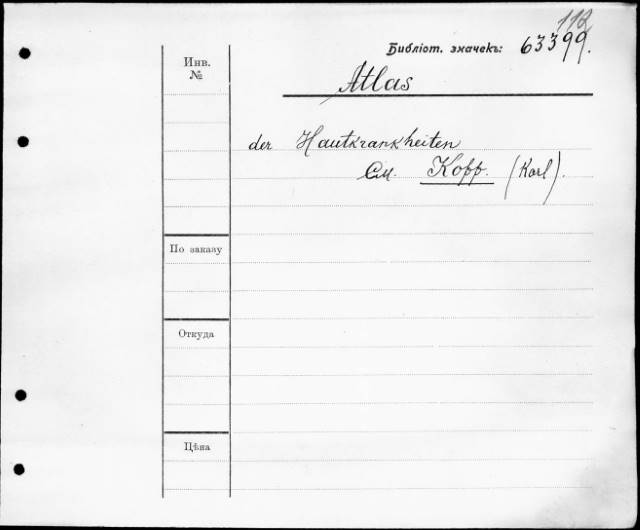 112
Библіот. значекъ: 63399.
Инв.
№
Atlas
der Hautkrankheiten
См. Kopp. (Karl).
По заказу
Откуда
Цѣна